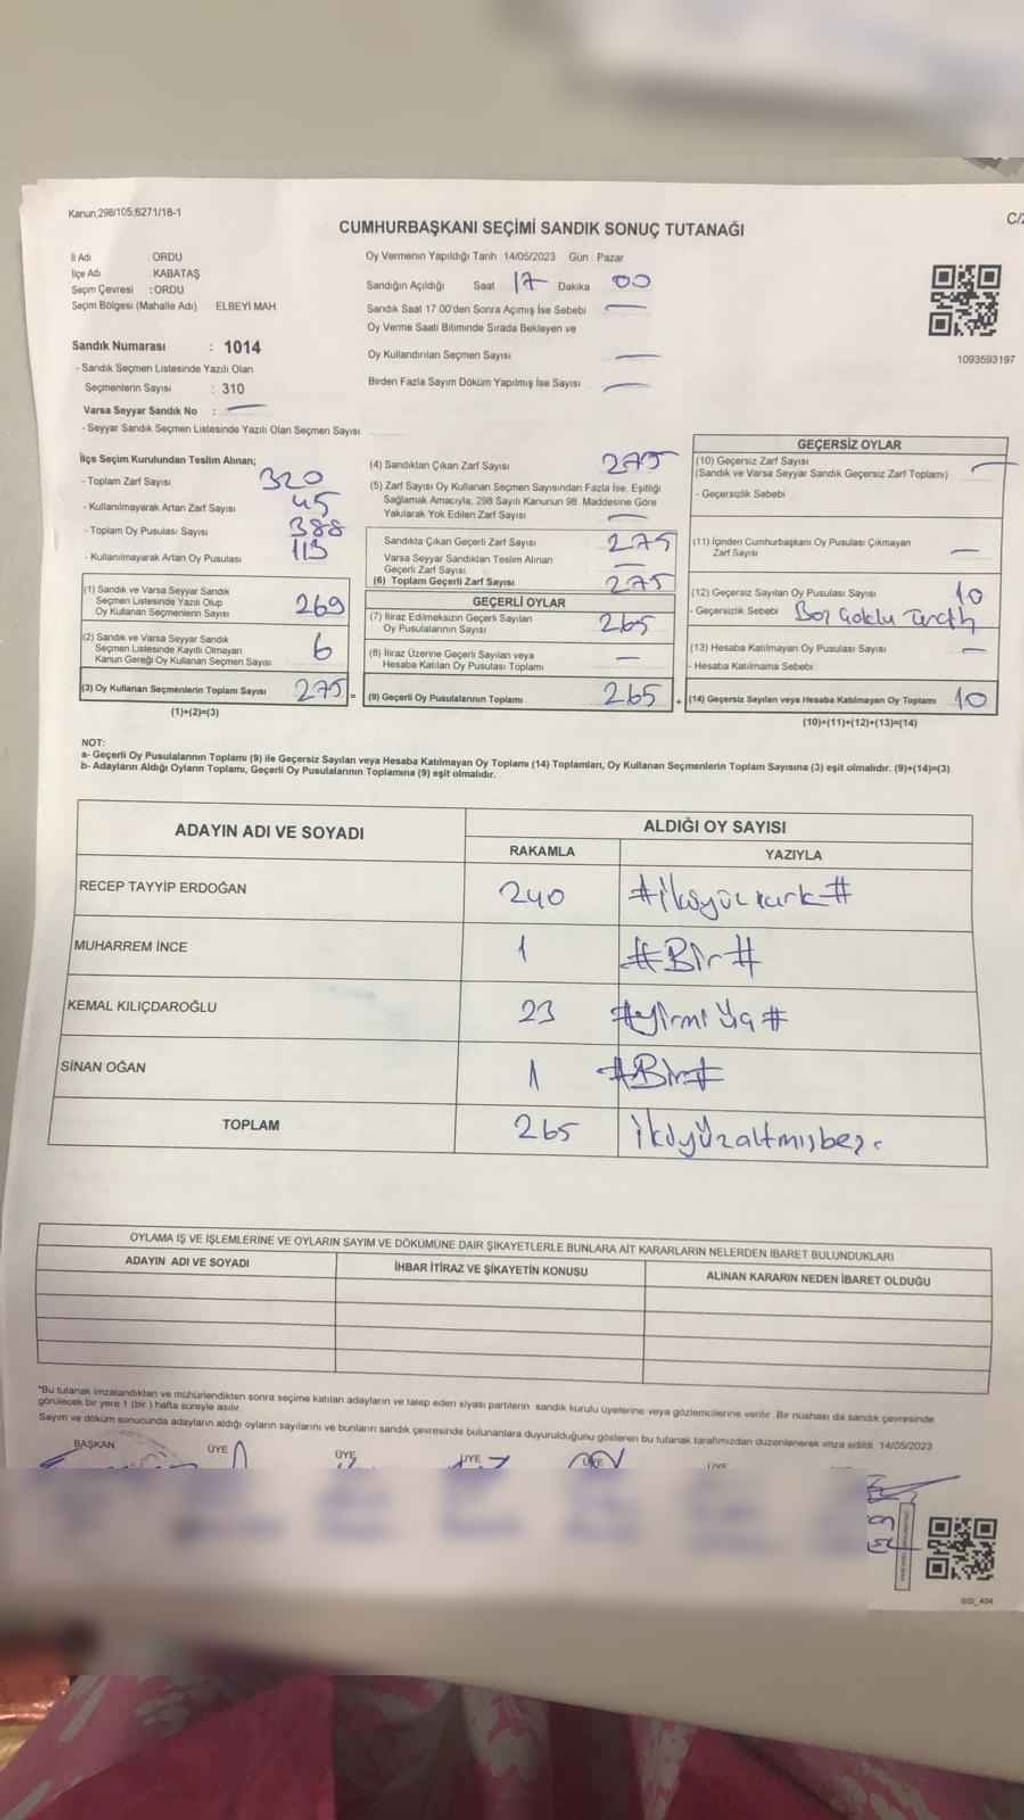 Kanun,298/105;6271/18-1
CUMHURBAŞKANI SEÇİMİ SANDIK SONUÇ TUTANAĞI
C/2
İl Adı : ORDU
İlçe Adı : KABATAŞ
Seçim Çevresi : ORDU
Seçim Bölgesi (Mahalle Adı) ELBEYİ MAH
Sandık Numarası : 1014
- Sandık Seçmen Listesinde Yazılı Olan
Seçmenlerin Sayısı : 310
Varsa Seyyar Sandık No :
- Seyyar Sandık Seçmen Listesinde Yazılı Olan Seçmen Sayısı
Oy Vermenin Yapıldığı Tarih 14/05/2023 Gün Pazar
Sandığın Açıldığı Saat 17 Dakika 00
Sandık Saat 17.00'den Sonra Açımış İse Sebebi —
Oy Verme Saati Bitiminde Sırada Bekleyen ve
Oy Kullandırılan Seçmen Sayısı —
Birden Fazla Sayım Döküm Yapılmış İse Sayısı —
1093593197
İlçe Seçim Kurulundan Teslim Alınan;
- Toplam Zarf Sayısı 320
- Kullanılmayarak Artan Zarf Sayısı 45
- Toplam Oy Pusulası Sayısı 388
- Kullanılmayarak Artan Oy Pusulası 113
(1) Sandık ve Varsa Seyyar Sandık
Seçmen Listesinde Yazılı Olup
Oy Kullanan Seçmenlerin Sayısı 269
(2) Sandık ve Varsa Seyyar Sandık
Seçmen Listesinde Kayıtlı Olmayan
Kanun Gereği Oy Kullanan Seçmen Sayısı 6
(3) Oy Kullanan Seçmenlerin Toplam Sayısı 275 =
(1)+(2)=(3)
(4) Sandıktan Çıkan Zarf Sayısı 275
(5) Zarf Sayısı Oy Kullanan Seçmen Sayısından Fazla İse, Eşitliği
Sağlamak Amacıyla, 298 Sayılı Kanunun 98. Maddesine Göre
Yakılarak Yok Edilen Zarf Sayısı —
Sandıkta Çıkan Geçerli Zarf Sayısı 275
Varsa Seyyar Sandıktan Teslim Alınan
Geçerli Zarf Sayısı —
(6) Toplam Geçerli Zarf Sayısı 275
GEÇERLİ OYLAR
(7) İtiraz Edilmeksizin Geçerli Sayılan
Oy Pusulalarının Sayısı 265
(8) İtiraz Üzerine Geçerli Sayılan veya
Hesaba Katılan Oy Pusulası Toplamı —
(9) Geçerli Oy Pusulalarının Toplamı 265 +
GEÇERSİZ OYLAR
(10) Geçersiz Zarf Sayısı
(Sandık ve Varsa Seyyar Sandık Geçersiz Zarf Toplamı) —
- Geçersizlik Sebebi
(11) İçinden Cumhurbaşkanı Oy Pusulası Çıkmayan
Zarf Sayısı —
(12) Geçersiz Sayılan Oy Pusulası Sayısı 10
- Geçersizlik Sebebi
(13) Hesaba Katılmayan Oy Pusulası Sayısı —
- Hesaba Katılmama Sebebi
(14) Geçersiz Sayılan veya Hesaba Katılmayan Oy Toplamı 10
(10)+(11)+(12)+(13)=(14)
NOT:
a- Geçerli Oy Pusulalarının Toplamı (9) ile Geçersiz Sayılan veya Hesaba Katılmayan Oy Toplamı (14) Toplamları, Oy Kullanan Seçmenlerin Toplam Sayısına (3) eşit olmalıdır. (9)+(14)=(3)
b- Adayların Aldığı Oyların Toplamı, Geçerli Oy Pusulalarının Toplamına (9) eşit olmalıdır.
ADAYIN ADI VE SOYADI
ALDIĞI OY SAYISI
RAKAMLA YAZIYLA
RECEP TAYYİP ERDOĞAN 240 #ikiyüz kırk#
MUHARREM İNCE 1 #Bir#
KEMAL KILIÇDAROĞLU 23 #yirmi üç#
SİNAN OĞAN 1 #Bir#
TOPLAM 265 ikiyüzaltmışbeş
OYLAMA İŞ VE İŞLEMLERİNE VE OYLARIN SAYIM VE DÖKÜMÜNE DAİR ŞİKAYETLERLE BUNLARA AİT KARARLARIN NELERDEN İBARET BULUNDUKLARI
ADAYIN ADI VE SOYADI İHBAR İTİRAZ VE ŞİKAYETİN KONUSU ALINAN KARARIN NEDEN İBARET OLDUĞU
*Bu tutanak imzalandıktan ve mühürlendikten sonra seçime katılan adayların ve talep eden siyasi partilerin sandık kurulu üyelerine veya gözlemcilerine verilir. Bir nüshası da sandık çevresinde
görülecek bir yere 1 (bir) hafta süreyle asılır.
Sayım ve döküm sonucunda adayların aldığı oyların sayılarını ve bunların sandık çevresinde bulunanlara duyurulduğunu gösteren bu tutanak tarafımızdan düzenlenerek imza edildi. 14/05/2023
BAŞKAN ÜYE ÜYE ÜYE ÜYE